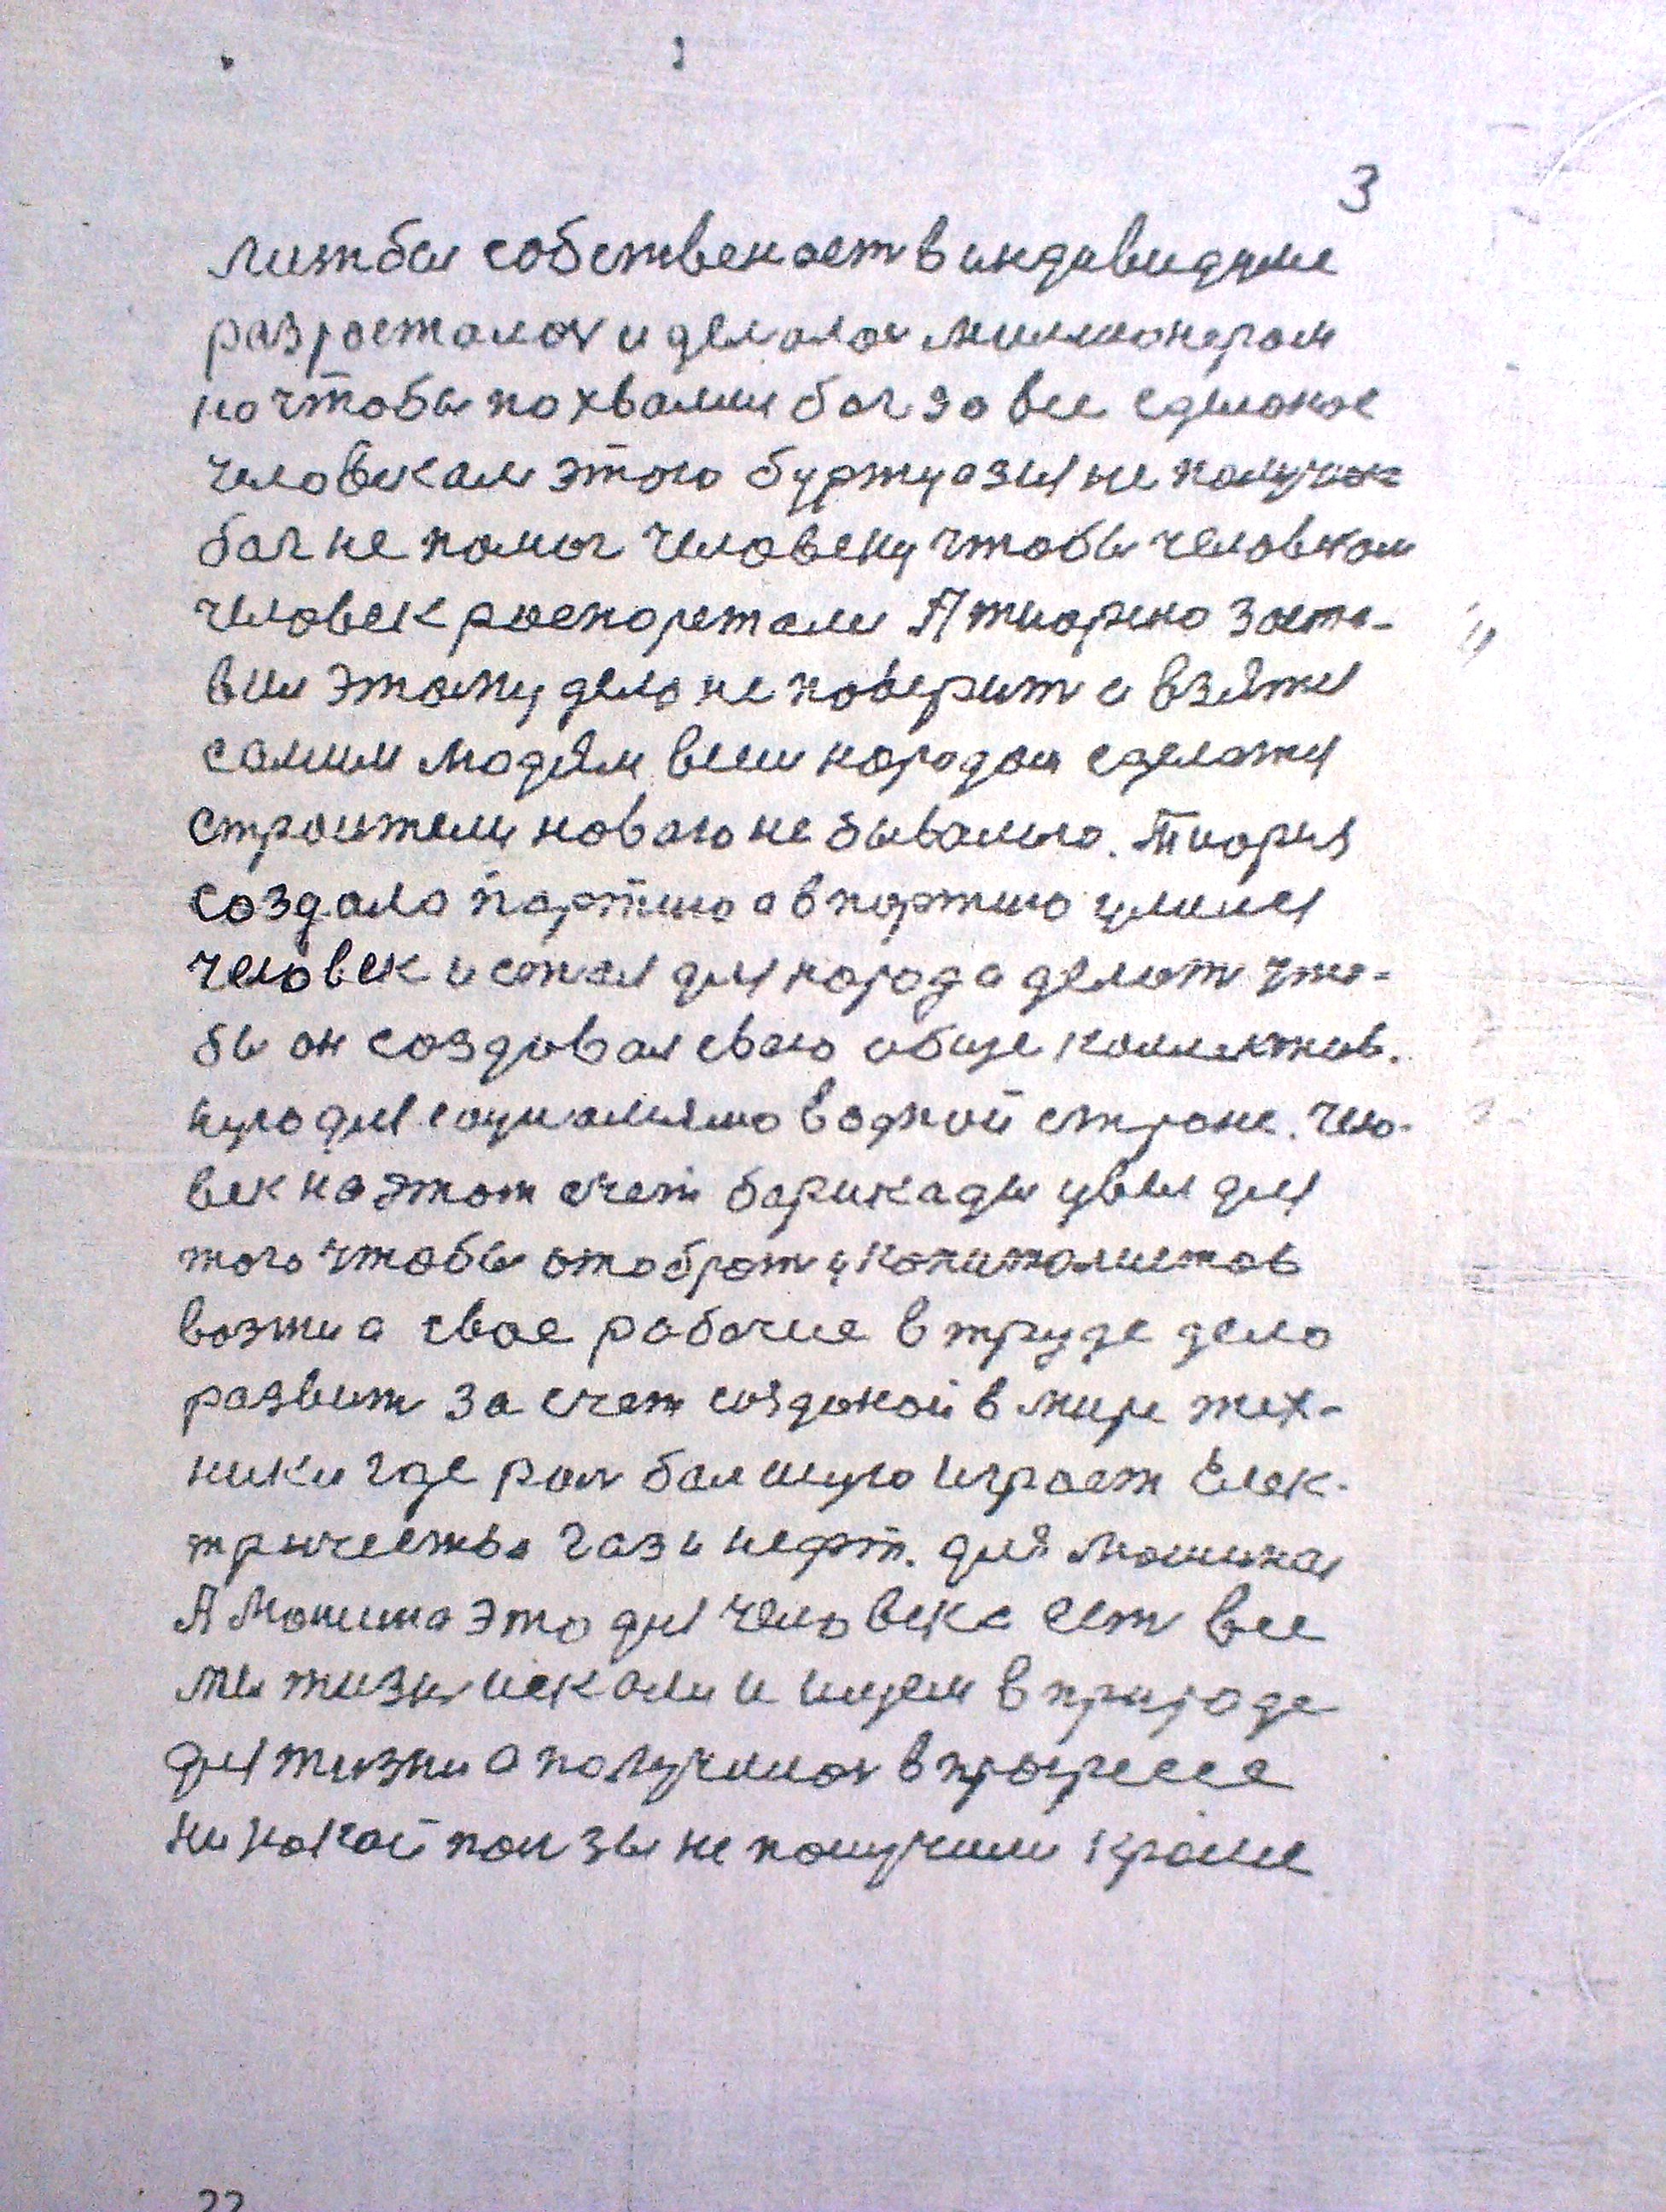 3
лижбы собственост в индивидуме
разросталось и делалось миллионером
но чтобы похвалил бог за все сделаное
человеком этого буржуазия не получила
бог не помог человеку чтобы человеком
человек роспорежали А тиорию заста-
вил этому делу не поверит и взятся
самим людям всем народом сделатся
строители новаго не бывалаго. Тиория
создала партию а в партию умился
человек и стал для народа делат что-
бы он создавал свою обще коллектив.
ную для социализма в одной стране. Чело-
век на этот счет барикады увел для
того чтобы отобрат у капиталистов
вожжи а свое рабочие в труде дело
развит за счет созданой в мире тех-
ники где рол болшую играет Елек-
тричество газ и нефт. для машины
А Машина это для человека ест все
мы жизн искали и ищем в природе
для жизни а получилось в прогрессе
ни какой ползы не получили кроме
22